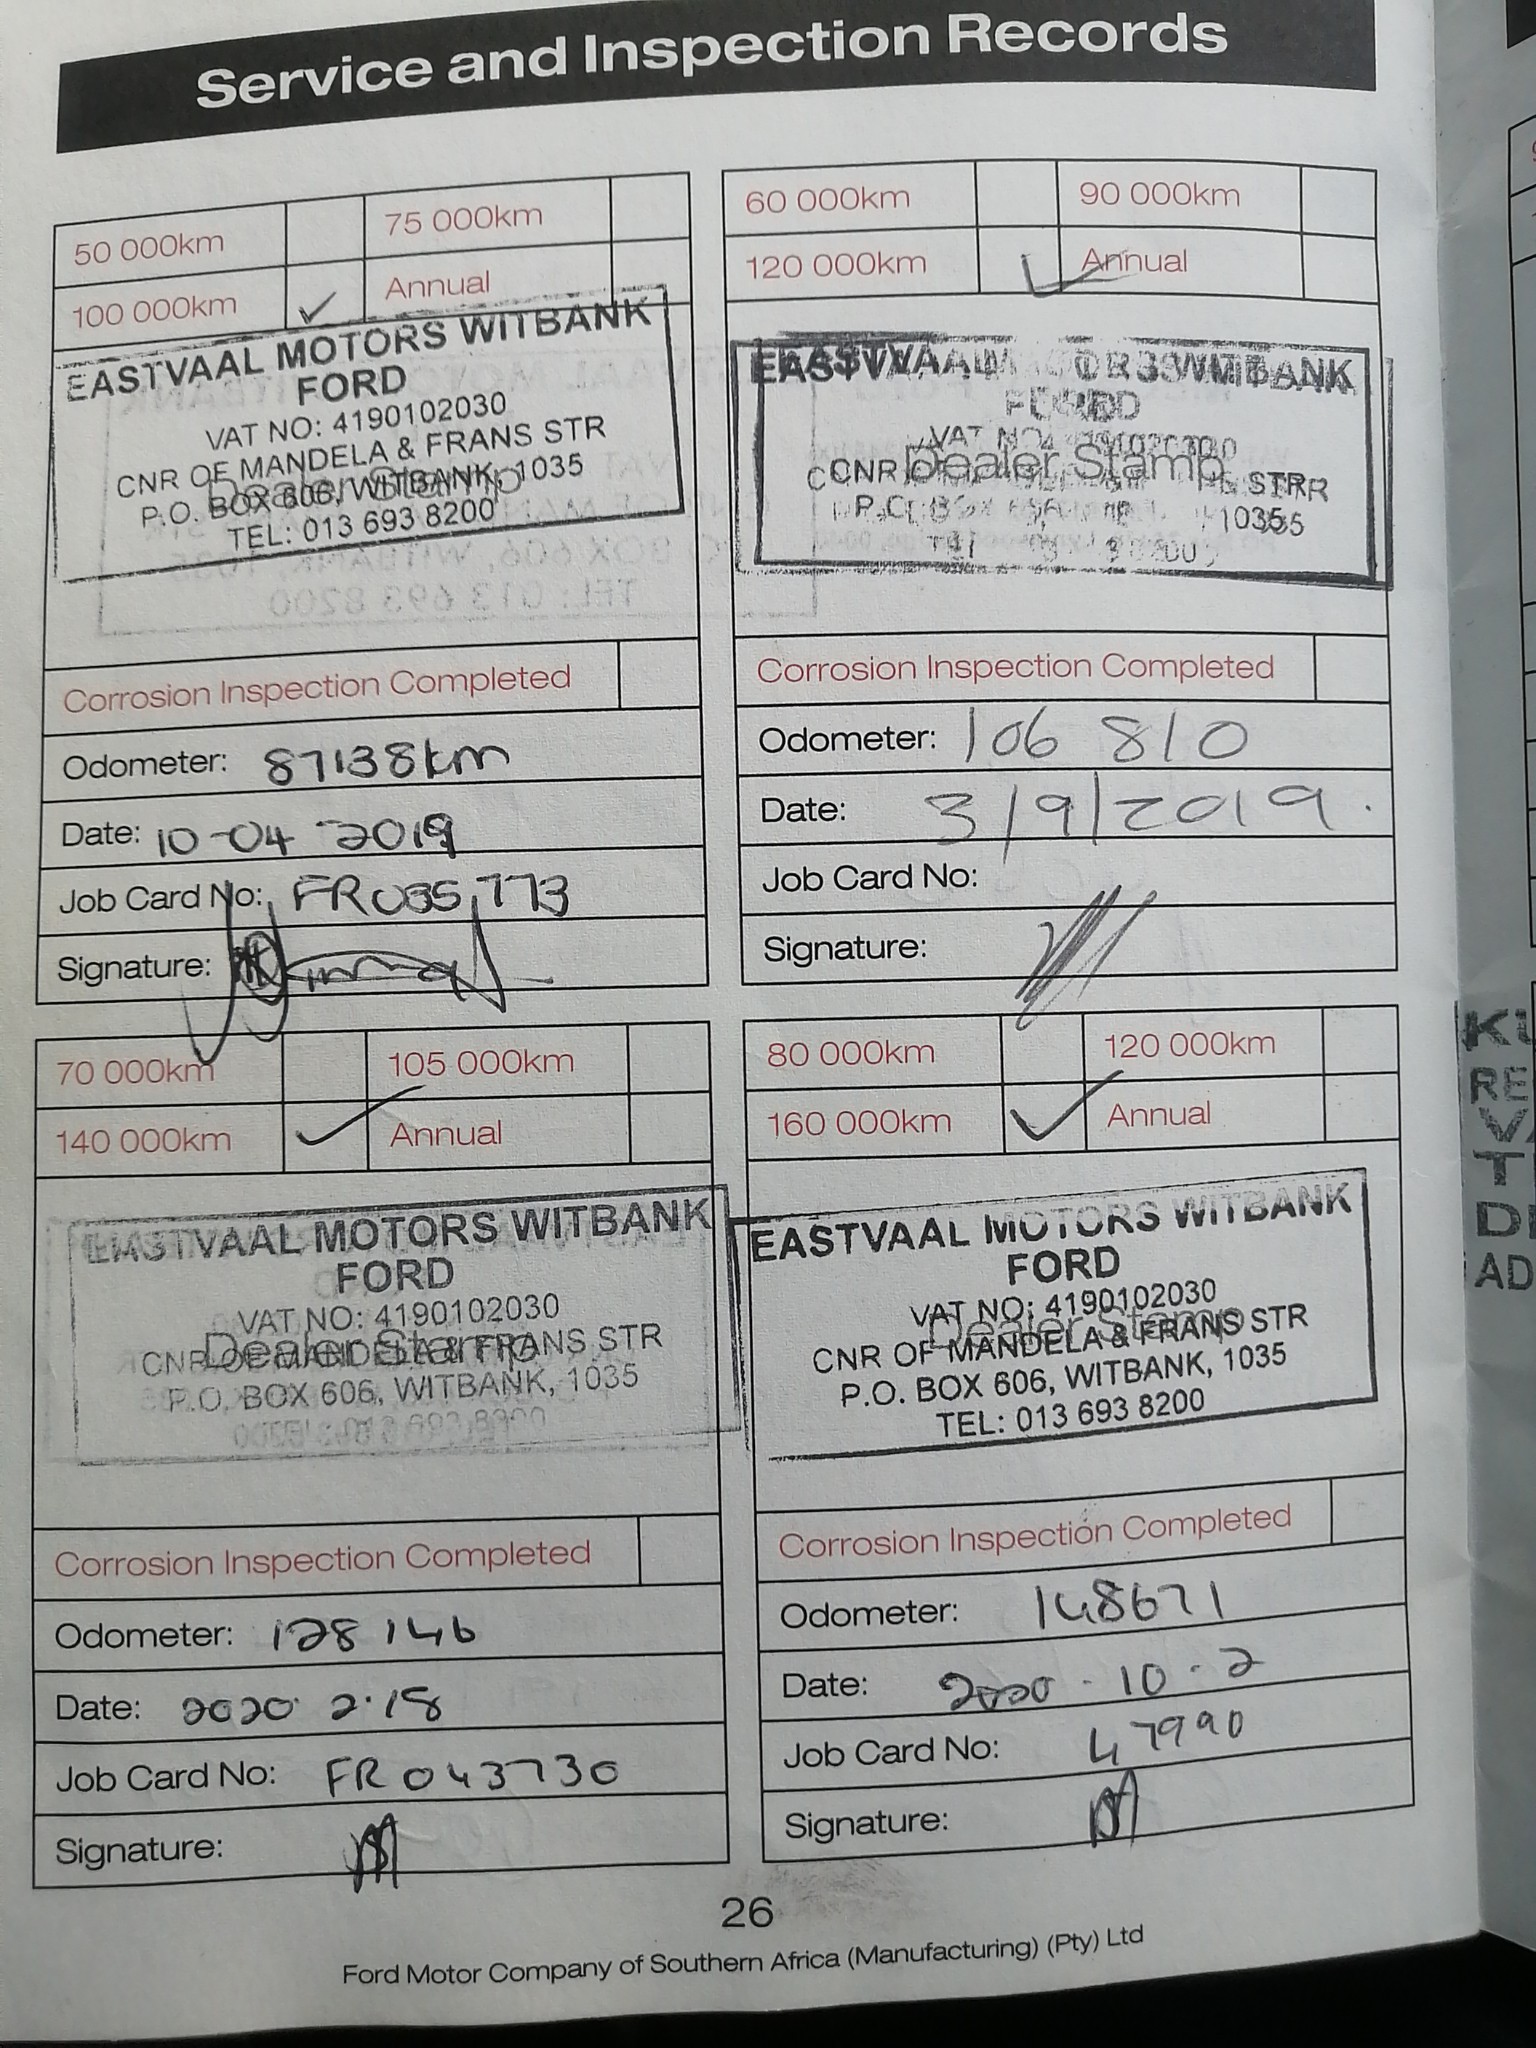 Service and Inspection Records
50 000km 75 000km
100 000km ✓ Annual
EASTVAAL MOTORS WITBANK
FORD
VAT NO: 4190102030
CNR OF MANDELA & FRANS STR
Dealer Stamp
P.O. BOX 606, WITBANK, 1035
TEL: 013 693 8200
Corrosion Inspection Completed
Odometer: 87138km
Date: 10-04-2019
Job Card No: FR035773
Signature:
60 000km 90 000km
120 000km ✓ Annual
EASTVAAL MOTORS WITBANK
FORD
VAT NO
Dealer Stamp
CNR STR
P.O. BOX 1035
Corrosion Inspection Completed
Odometer: 106 810
Date: 3/9/2019.
Job Card No:
Signature:
70 000km 105 000km
140 000km ✓ Annual
EASTVAAL MOTORS WITBANK
FORD
VAT NO: 4190102030
Dealer Stamp
CNR OF MANDELA & FRANS STR
P.O. BOX 606, WITBANK, 1035
TEL: 013 693 8200
Corrosion Inspection Completed
Odometer: 128146
Date: 2020.2.18
Job Card No: FR043730
Signature:
80 000km 120 000km
160 000km ✓ Annual
EASTVAAL MOTORS WITBANK
FORD
VAT NO: 4190102030
Dealer Stamp
CNR OF MANDELA & FRANS STR
P.O. BOX 606, WITBANK, 1035
TEL: 013 693 8200
Corrosion Inspection Completed
Odometer: 148671
Date: 2020.10.2
Job Card No: 47990
Signature:
26
Ford Motor Company of Southern Africa (Manufacturing) (Pty) Ltd